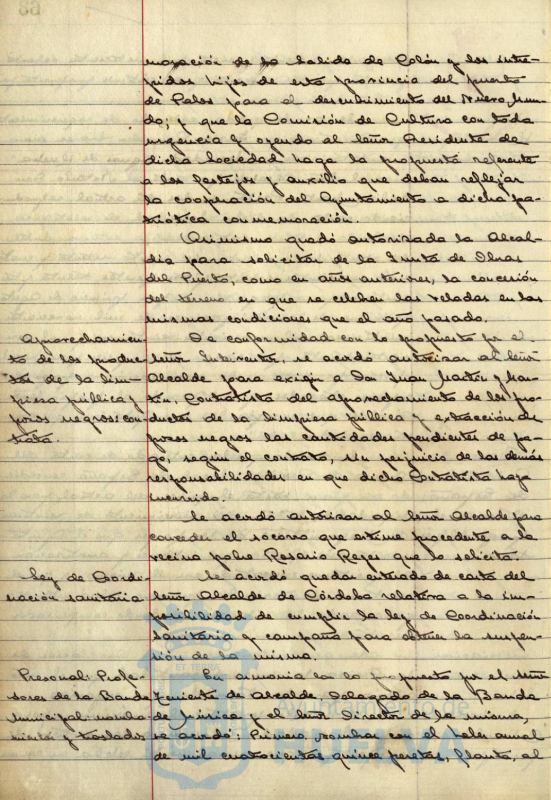 moración de la salida de Colón y los intré-
pidos hijos de esta provincia del puerto
de Palos para el descubrimiento del Nuevo Mun-
do; y que la Comisión de Cultura con toda
urgencia y oyendo al Señor Presidente de
dicha Sociedad haga la propuesta referente
a los festejos y auxilio que deban reflejar
la cooperación del Ayuntamiento a dicha pa-
triótica conmemoración.
Asimismo quedó autorizada la Alcal-
día para solicitar de la Junta de Obras
del Puerto, como en años anteriores, la concesión
del terreno en que se celebren las veladas en las
mismas condiciones que el año pasado.
Aprovechamien-
to de los produc-
tos de la lim-
pieza pública y
pozos negros: con-
trata.
De conformidad con lo propuesto por el
Señor Interventor, se acordó autorizar al Señor
Alcalde para exigir a Don Juan Martín y Mar-
tín, Contratista del aprovechamiento de los pro-
ductos de la limpieza pública y extracción de
pozos negros las cantidades pendientes de pa-
go, según el contrato, sin perjuicio de las demás
responsabilidades en que dicho Contratista haya
incurrido.
Se acordó autorizar al Señor Alcalde para
conceder el socorro que estime procedente a la
vecina pobre Rosario Reyes que lo solicita.
Ley de Coordi-
nación sanitaria
Se acordó quedar enterado de carta del
Señor Alcalde de Córdoba relativa a la im-
posibilidad de cumplir la ley de Coordinación
sanitaria y campaña para obtener la suspen-
sión de la misma.
Personal: Profe-
sores de la Banda
Municipal: nombra-
mientos y traslados
En armonía con lo propuesto por el Señor
Teniente de Alcalde, Delegado de la Banda
de Música y el Señor Director de la misma,
se acordó: Primero, nombrar con el haber anual
de mil cuatrocientas quince pesetas, flauta, al
Ayuntamiento de
HUELVA